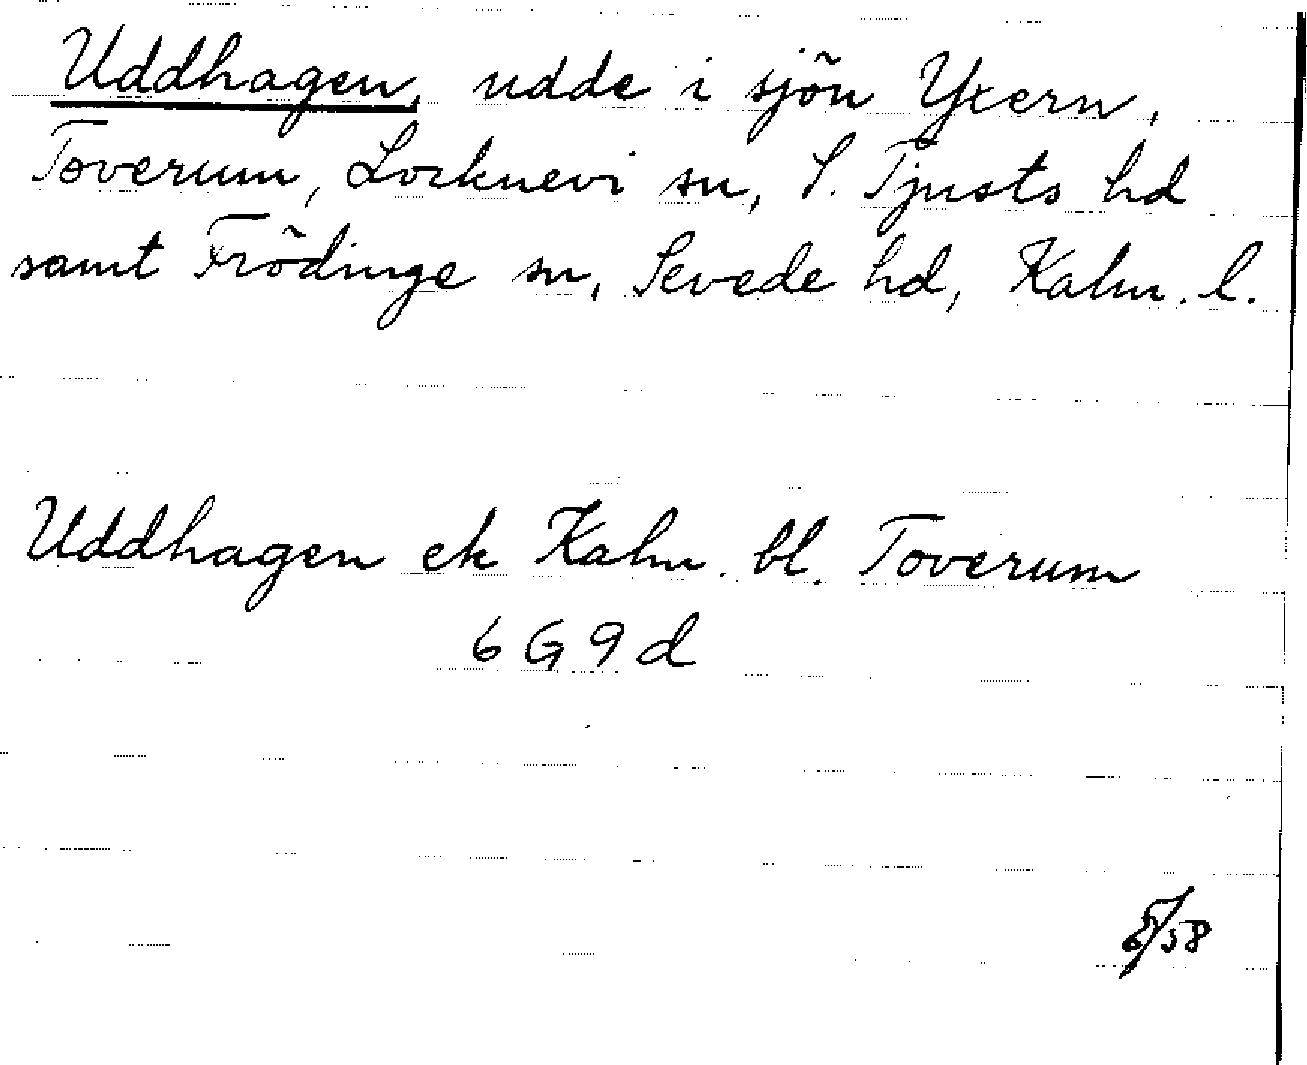 Uddhagen, udde i sjön Yxern,
Toverum, Locknevi sn, S. Tjusts hd
samt Frödinge sn, Sevede hd, Kalm. l.
Uddhagen ek Kalm. bl. Toverum
6 G 9 d
/58